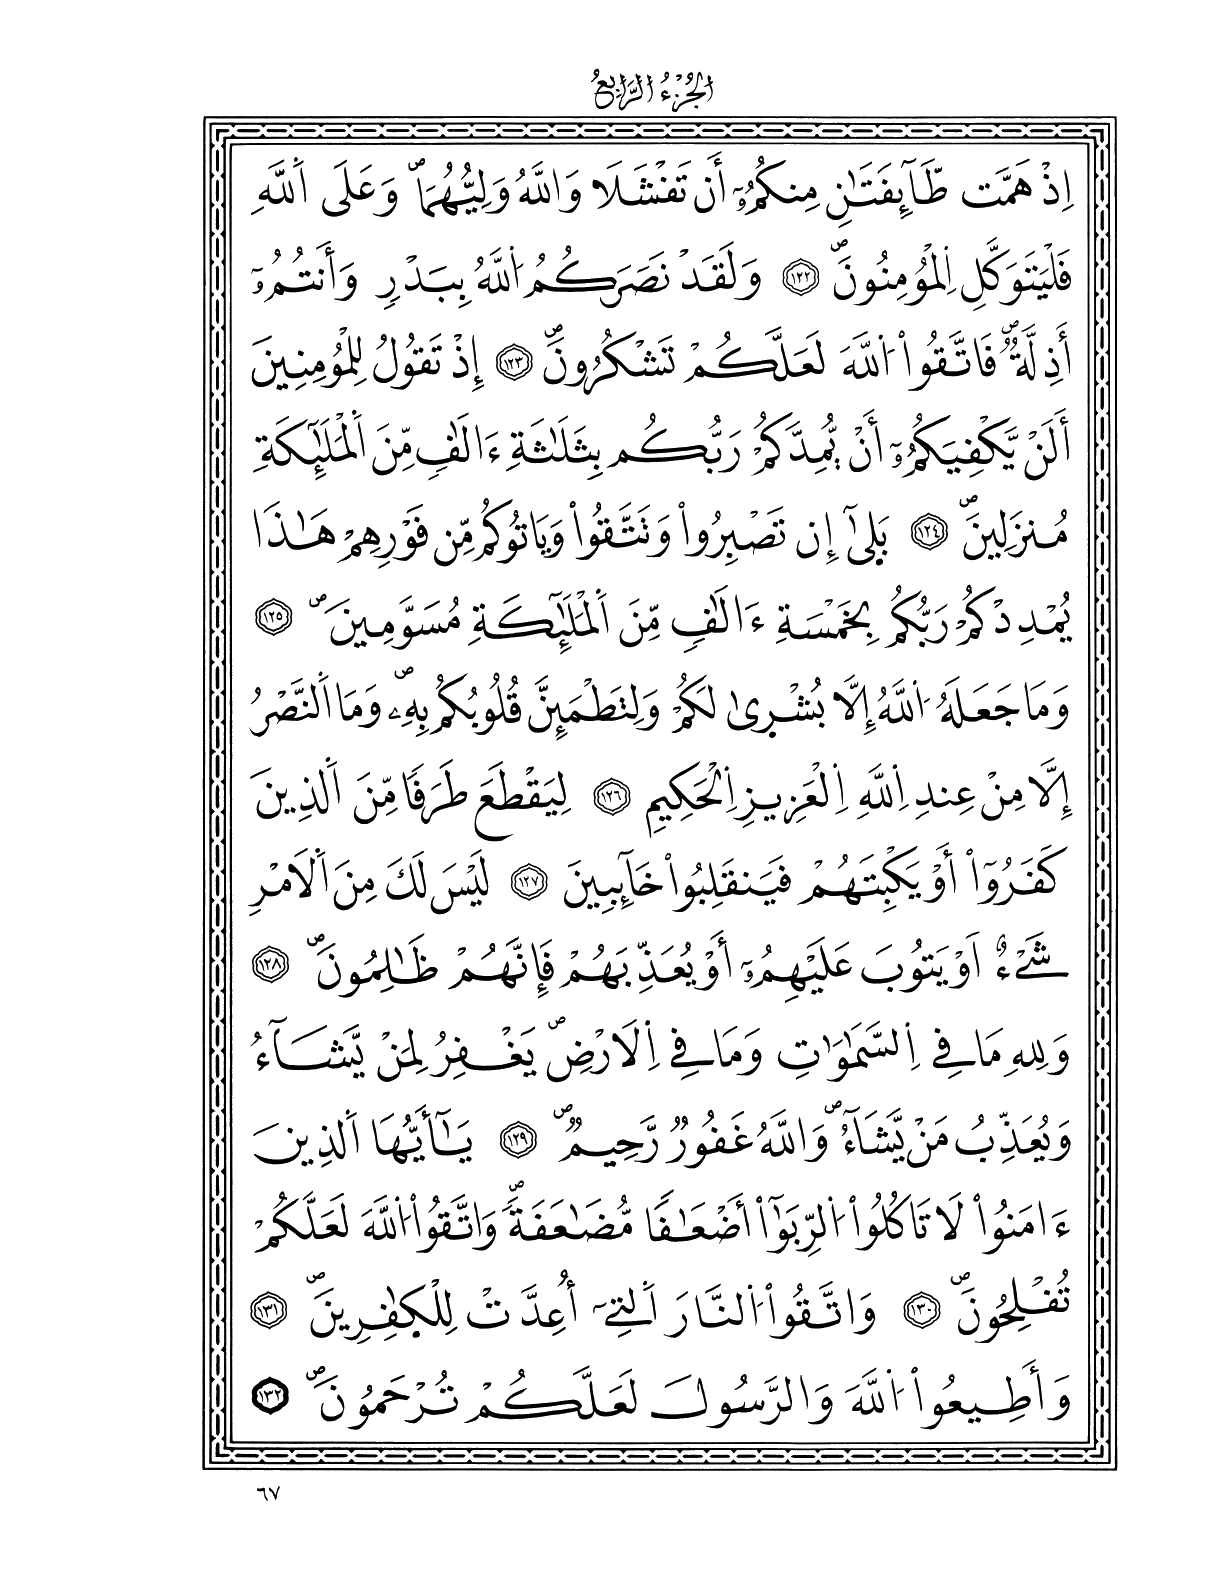 الجُزْءُ الرَّابِعُ
اِذْ هَمَّت طَّآئِفَتَٰنِ مِنكُمُۥٓ أَن تَفْشَلَا وَاللَّهُ وَلِيُّهُمَاۖ وَعَلَى اَ۬للَّهِ
فَلْيَتَوَكَّلِ اِ۬لْمُؤْمِنُونَۖ ١٢٢ وَلَقَدْ نَصَرَكُمُ اُ۬للَّهُ بِبَدْرٖ وَأَنتُمُۥٓ
أَذِلَّةٞۖ فَاتَّقُواْ اُ۬للَّهَ لَعَلَّكُمْ تَشْكُرُونَۖ ١٢٣ إِذْ تَقُولُ لِلْمُؤْمِنِينَ
أَلَنْ يَّكْفِيَكُمُۥٓ أَنْ يُّمِدَّكُمْ رَبُّكُم بِثَلَٰثَةِ ءَالَٰفٖ مِّنَ اَ۬لْمَلَٰٓئِكَةِ
مُنزَلِينَۖ ١٢٤ بَلىٰٓ إِن تَصْبِرُواْ وَتَتَّقُواْ وَيَاتُوكُم مِّن فَوْرِهِمْ هَٰذَا
يُمْدِدْكُمْ رَبُّكُم بِخَمْسَةِ ءَالَٰفٖ مِّنَ اَ۬لْمَلَٰٓئِكَةِ مُسَوَّمِينَۖ ١٢٥
وَمَا جَعَلَهُ اُ۬للَّهُ إِلَّا بُشْرىٰ لَكُمْ وَلِتَطْمَئِنَّ قُلُوبُكُم بِهِۦۖ وَمَا اَ۬لنَّصْرُ
إِلَّا مِنْ عِندِ اِ۬للَّهِ اِ۬لْعَزِيزِ اِ۬لْحَكِيمِ ١٢٦ لِيَقْطَعَ طَرَفاٗ مِّنَ اَ۬لذِينَ
كَفَرُوٓاْ أَوْ يَكْبِتَهُمْ فَيَنقَلِبُواْ خَآئِبِينَ ١٢٧ لَيْسَ لَكَ مِنَ اَ۬لَامْرِ
شَےْءٌ اَوْ يَتُوبَ عَلَيْهِمُۥٓ أَوْ يُعَذِّبَهُمْ فَإِنَّهُمْ ظَٰلِمُونَۖ ١٢٨
وَلِلهِ مَا فِي اِ۬لسَّمَٰوَٰتِ وَمَا فِي اِ۬لَارْضِۖ يَغْفِرُ لِمَنْ يَّشَآءُ
وَيُعَذِّبُ مَنْ يَّشَآءُۖ وَاللَّهُ غَفُورٞ رَّحِيمٞۖ ١٢٩ يَٰٓأَيُّهَا اَ۬لذِينَ
ءَامَنُواْ لَا تَاكُلُواْ اُ۬لرِّبَوٰٓاْ أَضْعَٰفاٗ مُّضَٰعَفَةٗۖ وَاتَّقُواْ اُ۬للَّهَ لَعَلَّكُمْ
تُفْلِحُونَۖ ١٣٠ وَاتَّقُواْ اُ۬لنَّارَ اَ۬لتِےٓ أُعِدَّتْ لِلْكٰ۪فِرِينَۖ ١٣١
وَأَطِيعُواْ اُ۬للَّهَ وَالرَّسُولَ لَعَلَّكُمْ تُرْحَمُونَۖ ١٣٢
٦٧